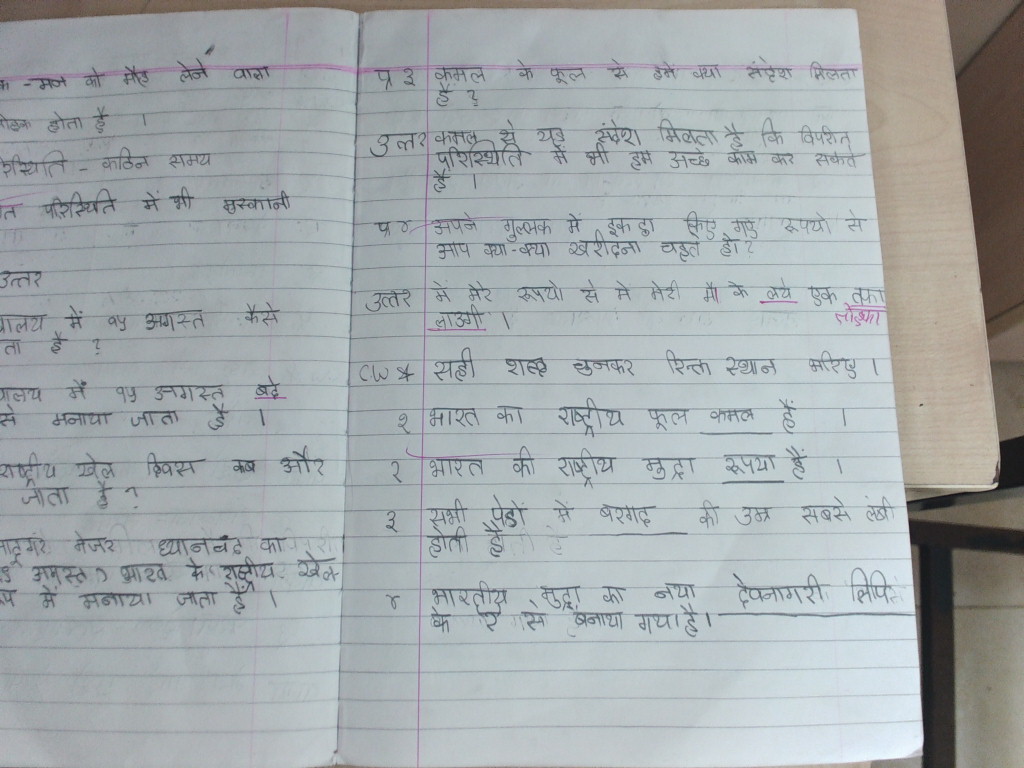 क - मन को मोह लेने वाला
मोहक होता है ।
रिस्थिति - कठिन समय
त परिस्थिति में भी मुस्कानी
उत्तर
यालय में १५ अगस्त कैसे
ता है ?
यालय में १५ अगस्त बढ़े
से मनाया जाता है ।
राष्ट्रीय खेल दिवस कब और
जाता है ?
जादूगर मेजर ध्यानचंद का
अगस्त भारत के राष्ट्रीय खेल
में मनाया जाता है ।
प्र ३ कमल के फूल से हमें क्या संदेश मिलता
है ?
उत्तर कमल से यह संदेश मिलता है कि विपरित
परिस्थिति में भी हम अच्छे काम कर सकते
है ।
प्र ४ आपने गुल्लक में इकठ्ठा किए गए रूपयो से
आप क्या-क्या खरीदना चहते हो ?
उत्तर में मेरे रूपयो से मे मेरी माँ के लये एक
लाउगी ।
CW * सही शब्द चुनकर रिक्त स्थान भरिए ।
१ भारत का राष्ट्रीय फूल कमल हैं ।
२ भारत की राष्ट्रीय मुद्रा रूपया है ।
३ सभी पेडों में बरगद की उम्र सबसे लंबी
होती है
४ भारतीय मुद्रा का नया देवनागरी लिपि
के र से बनाया गया है।